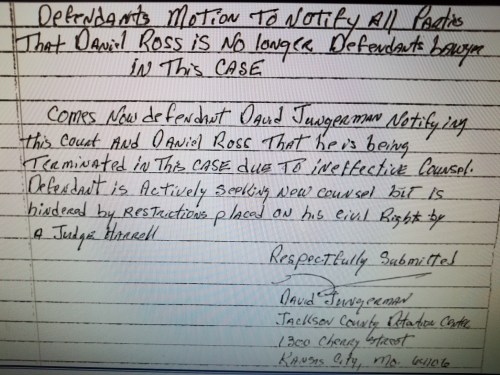 Defendants Motion To Notify All Parties
That Daniel Ross is No longer Defendants Lawyer
IN This CASE
Comes Now defendant David Jungerman Notifying
this Court And Daniel Ross That he is being
Terminated in This CASE due To ineffective Counsel.
Defendant is Actively Seeking New counsel but is
hindered by Restrictions placed on his civil Rights by
a Judge Harrell
Respectfully Submitted
David Jungerman
Jackson County Detention Center
1300 Cherry Street
Kansas City, Mo. 64106